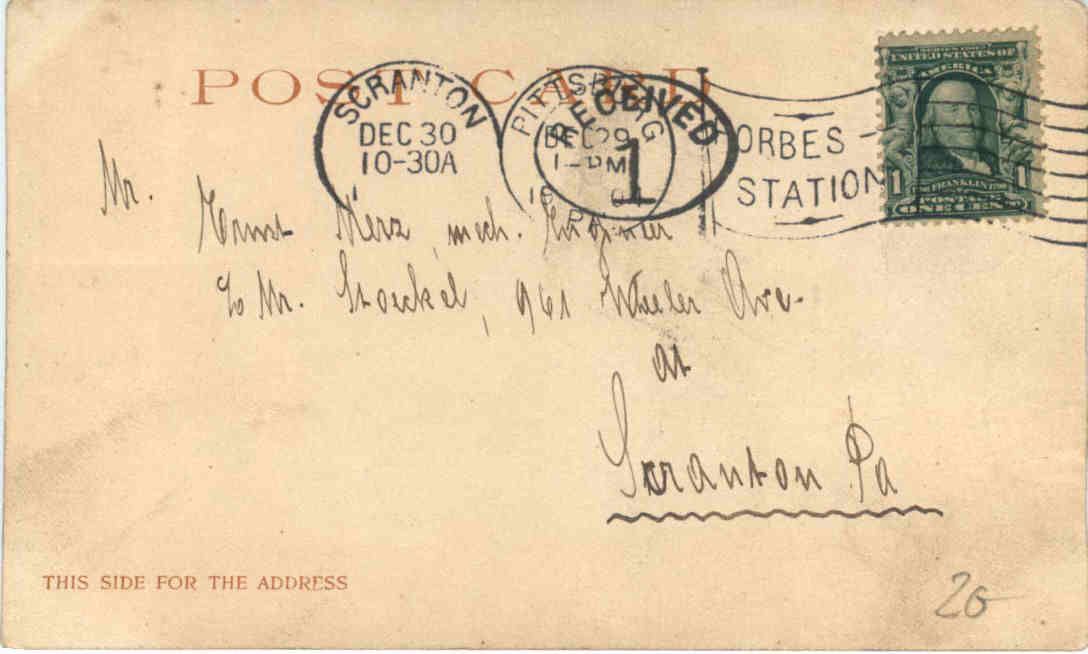 POST CARD
SCRANTON
DEC 30
10-30A
PITTSBURG
DEC 29
1-PM
PA.
RECEIVED
1
FORBES
STATION
SERIES 1902
UNITED STATES OF
AMERICA
FRANKLIN
POSTAGE
1 ONE CENT 1
Mr.
Ernst Merz mech. Engineer
℅ Mr. Stoeckel, 961 Wheeler Ave.
at
Scranton Pa
THIS SIDE FOR THE ADDRESS
20